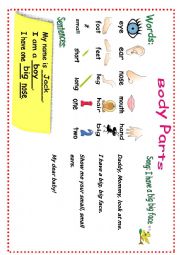 Body Parts
Song: I have a big big face
Words:
eye ear nose mouth hand
foot feet I big
small short long one two
Sentences:
My name is Jack
I am a boy
I have one big nose
Daddy, Mommy, look at me.
I have a big, big face.
Show me your small, small
ears.
My dear baby!